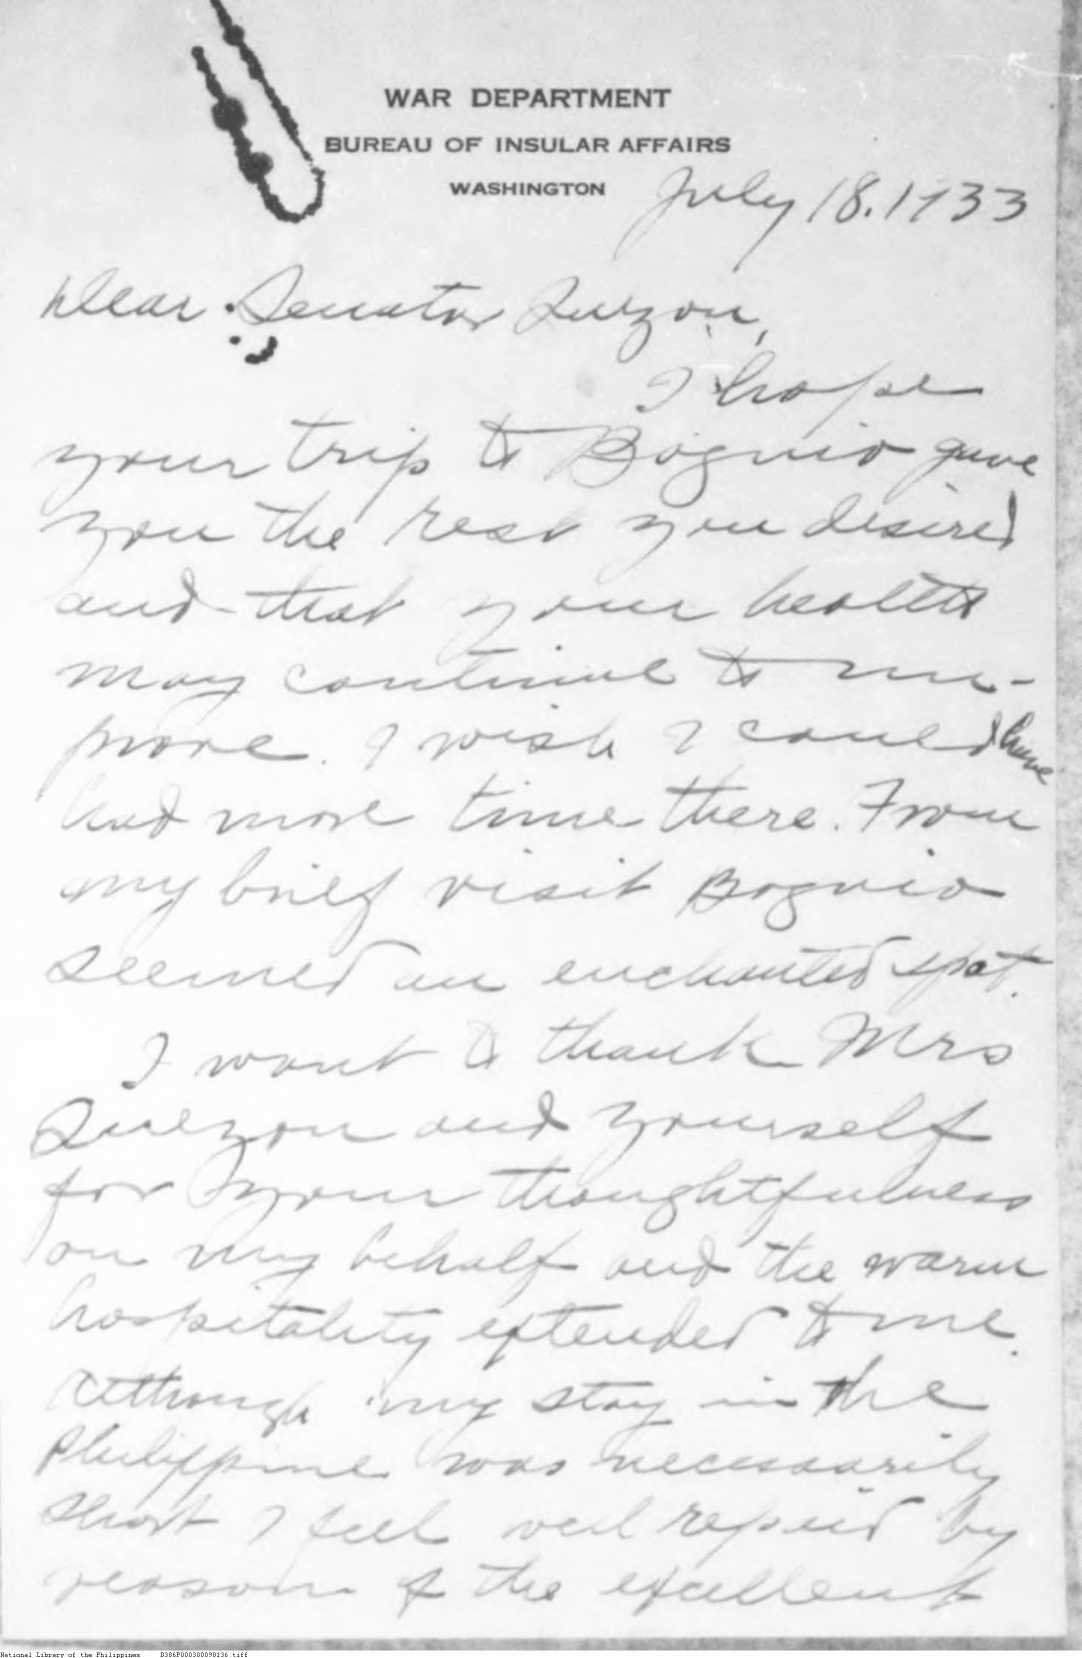 WAR DEPARTMENT
BUREAU OF INSULAR AFFAIRS
WASHINGTON
July 18. 1933
Dear Senator Quezon,
I hope
your trip to Baguio gave
you the rest you desired
and that your health
may continue to im-
prove. I wish I could have
had more time there. From
my brief visit Baguio
seemed an enchanted spot.
I want to thank Mrs
Quezon and yourself
for your thoughtfulness
on my behalf and the warm
hospitality extended to me.
Although my stay in the
Philippine was necessarily
short I feel well repaid by
reason of the excellent
National Library of the Philippines D386P000380098136.tiff